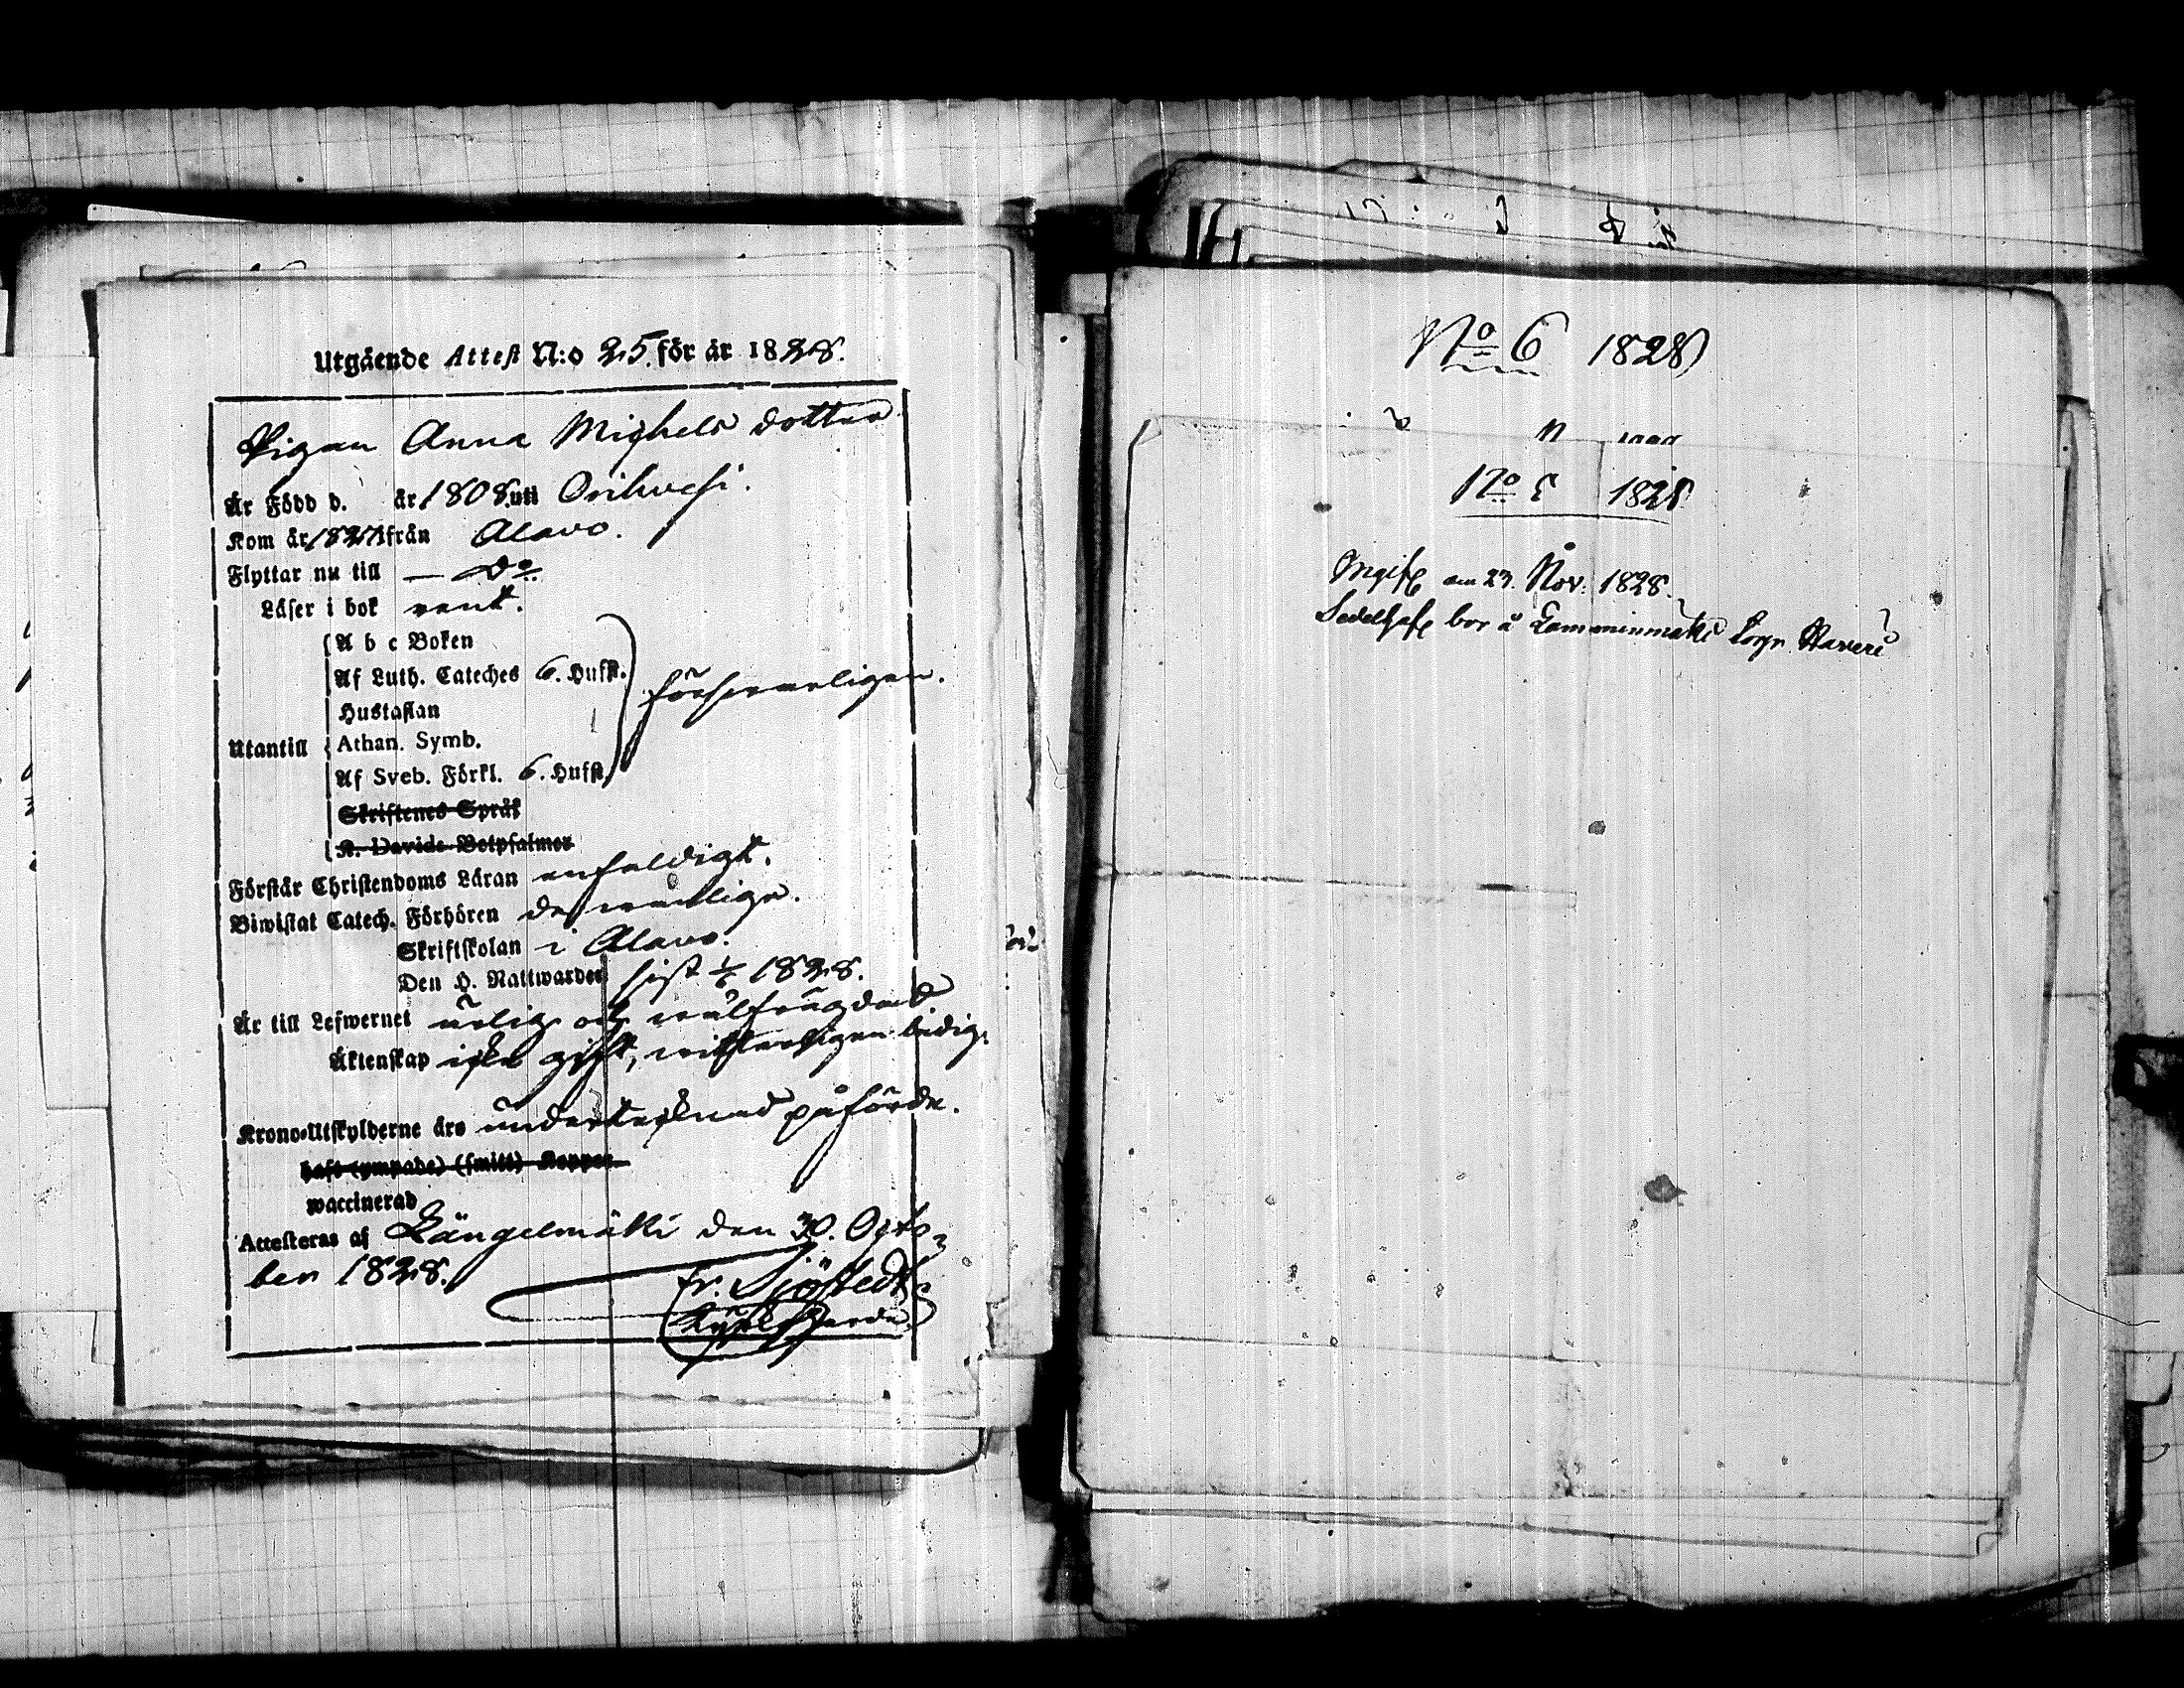 Utgående Attest N:o 25. för år 1828.
Pigan Anna Michels dotter
Är Född d. år 1808. uti Orihvesi.
Kom år 1827 ifrån Alavo.
Flyttar nu till — Do
Läser i bok rent.
A b c Boken
Af Luth. Cateches 6. Hufst.
försvarligen.
Hustaflan
Utantill
Athan. Symb.
Af Sveb. Förkl. 6. Hufst.
Skriftenes Språk
K. Davids Botpsalmer
Förstår Christendoms Läran enfaldigt.
Biwistat Catech. Förhören de vanliga.
Skriftskolan i Alavo.
Den H. Nattwarden sist 1828.
Är till Lefwernet ärlig och välfrägdad
Äktenskap icke gift, vitterligen ledig.
Krono-Utskylderne äro undertecknad påförda.
haft (ympade) (smitt) Koppor
waccinerad
Attesteras af Längelmäki den 30. Octo-
ber 1828.
Fr. Sjöstedt
Kyrkoherde.
No 6 1828
No 1828
Ingift am 23. Nov. 1828.
bor å